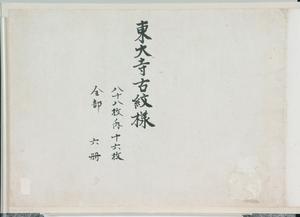 東大寺古紋様
八十八枚内十六枚
全部 六冊